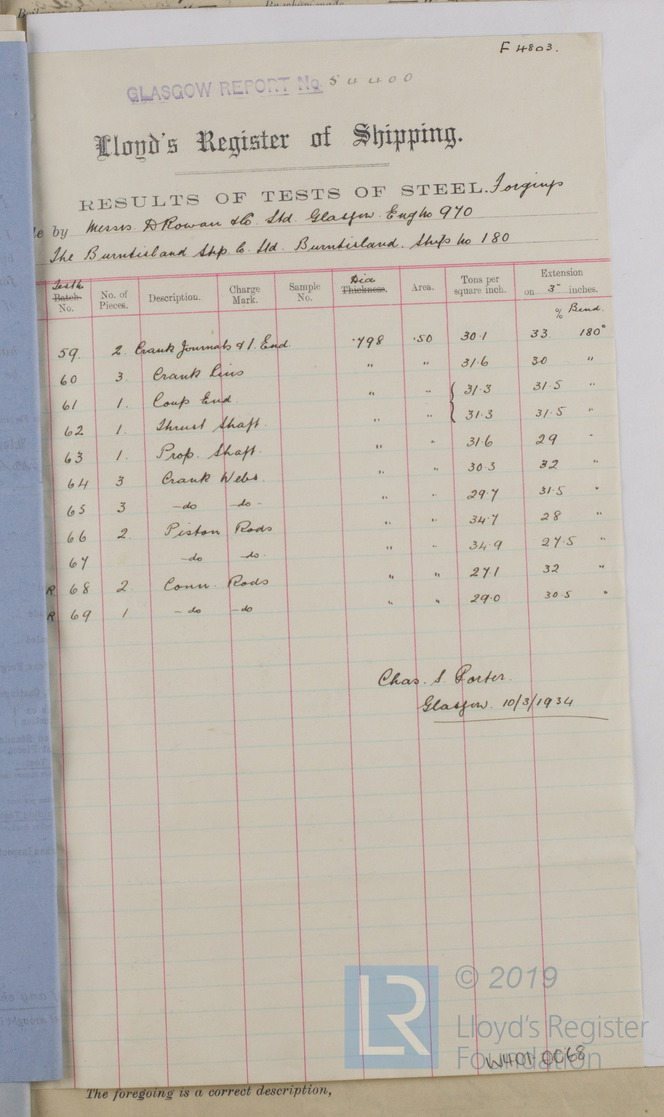 F 4803.
GLASGOW REPORT No 54400
Lloyd's Register of Shipping.
RESULTS OF TESTS OF STEEL. Forgings
e by Messrs D Rowan & Co. Ltd. Glasgow. Eng No 970
The Burntisland Ship Co Ltd. Burntisland. Ship No 180
Test No Batch No. No. of Pieces. Description. Charge Mark. Sample No. Dia Thickness. Area. Tons per square inch. Extension on 3" inches.
% Bend.
59. 2. Crank Journals & 1. End .798 .50 30.1 33 180°
60 3. Crank Pins " " 31.6 30 "
61 1. Coup End. " " 31.3 31.5 "
62 1. Thrust Shaft. " " 31.3 31.5 "
63 1. Prop. Shaft. " " 31.6 29 "
64 3 Crank Webs. " " 30.3 32 "
65 3 -do -do- " " 29.7 31.5 "
66 2. Piston Rods " " 34.7 28 "
67 -do -do- " " 34.9 27.5 "
R 68 2. Conn. Rods " " 27.1 32 "
R 69 1 -do -do " " 29.0 30.5 "
Chas. S. Porter.
Glasgow. 10/3/1934
LR
© 2019
Lloyd's Register
Foundation
W401-0068
The foregoing is a correct description,